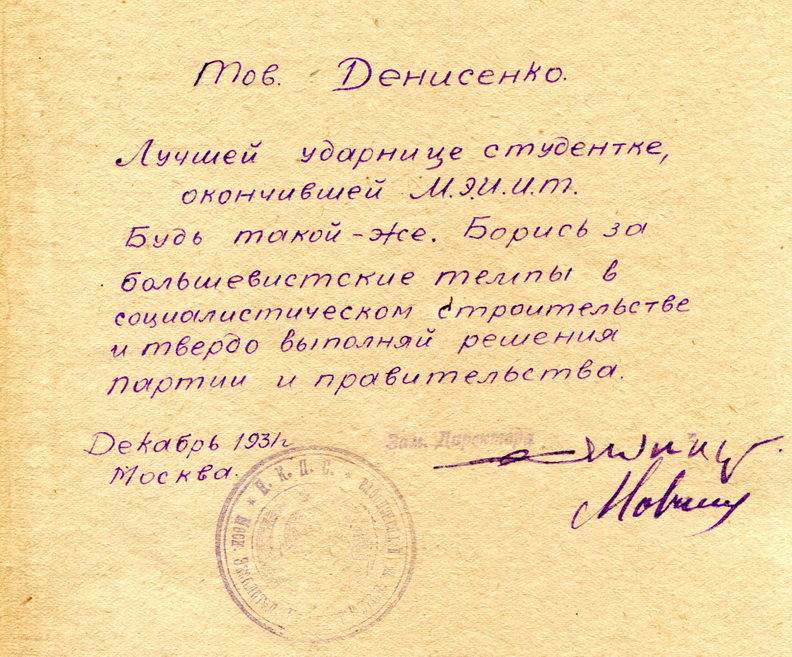 Тов. Денисенко.
Лучшей ударнице студентке,
окончившей М.Э.И.И.Т.
Будь такой-же. Борись за
большевистские темпы в
социалистическом строительстве
и твердо выполняй решения
партии и правительства.
Декабрь 1931г
Москва.
Зам. Директора
Н. К. П. С.